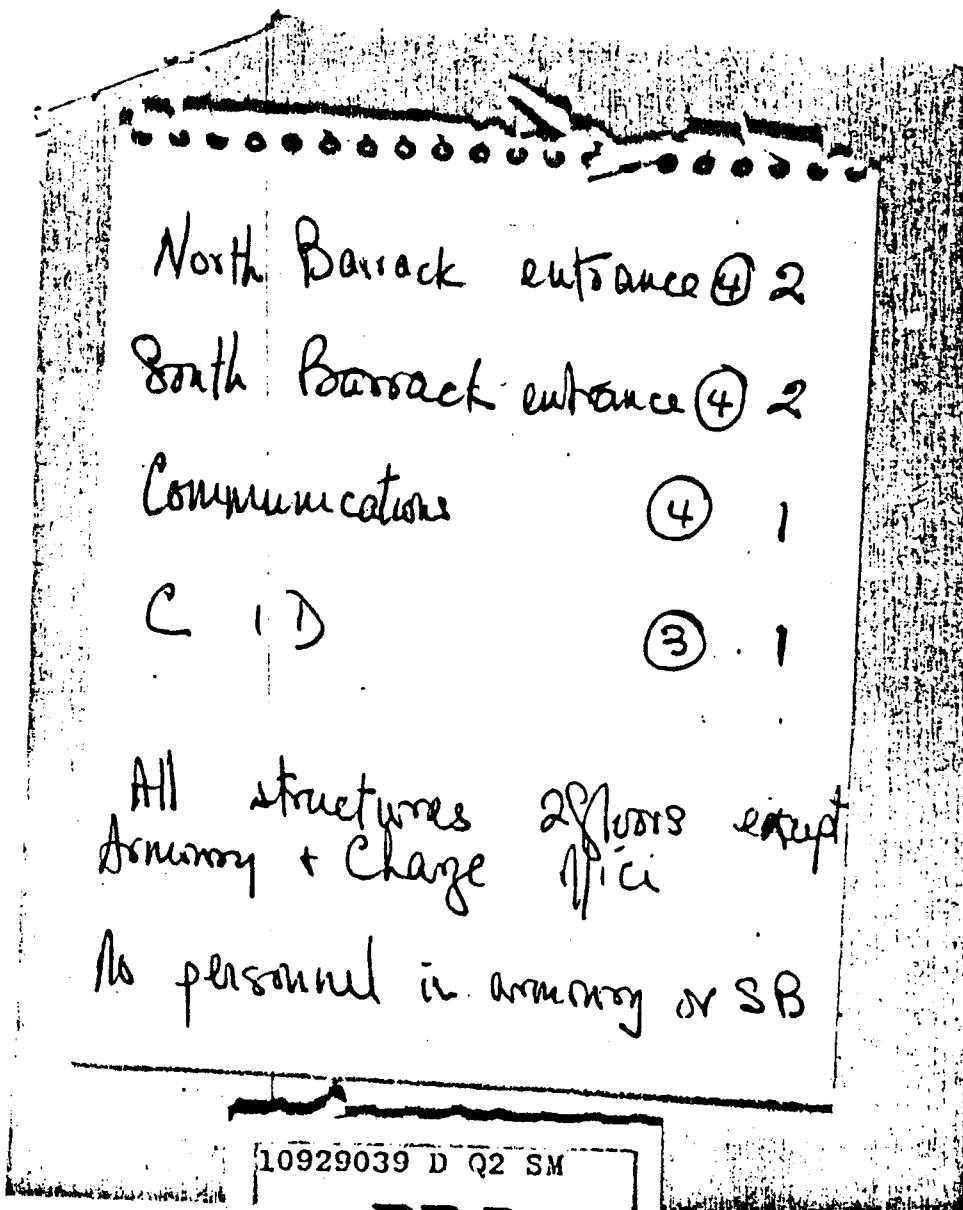 North Barrack entrance ④ 2
South Barrack entrance ④ 2
Communications ④ 1
C I D ③ 1
All structures 2 floors except
Armoury + Charge Office
No personnel in armoury or SB
10929039 D Q2 SM